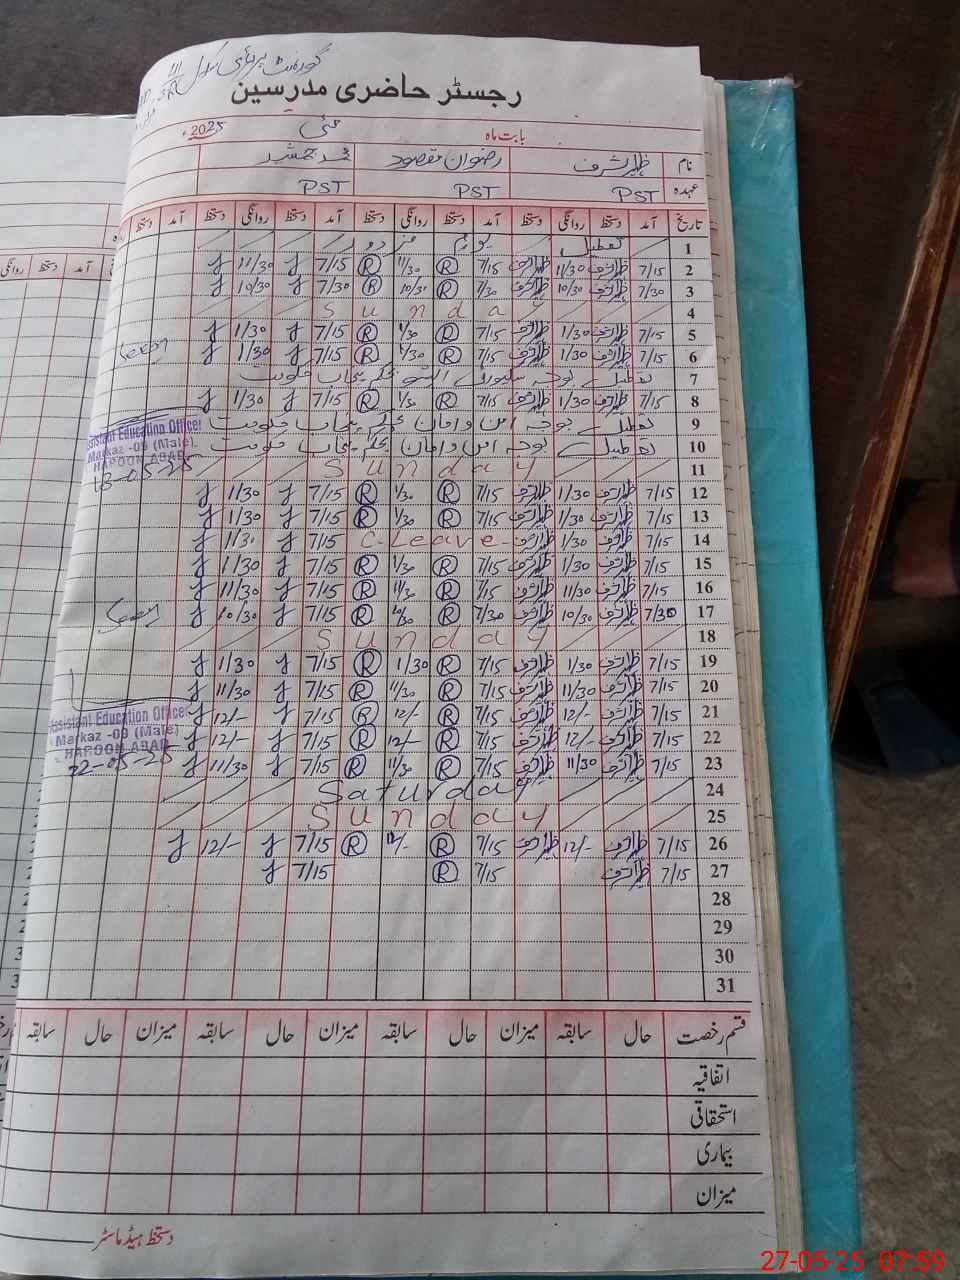 گورنمنٹ پرائمری سکول
رجسٹر حاضری مدرسین
بابت ماہ مئی 2025ء
نام ظہیر اشرف رضوان مقصود محمد جمشید
عہدہ PST PST PST
تاریخ آمد دستخط روانگی دستخط آمد دستخط روانگی دستخط آمد دستخط روانگی دستخط آمد دستخط
1 تعطیل یوم مزدور
2 7/15 11/30 7/15 Ⓡ 11/30 Ⓡ 7/15 11/30
3 7/30 10/30 7/30 Ⓡ 10/30 Ⓡ 7/30 10/30
4 Sunday
5 7/15 1/30 7/15 Ⓡ 1/30 Ⓡ 7/15 1/30
6 7/15 1/30 7/15 Ⓡ 1/30 Ⓡ 7/15 1/30
7 تعطیل بوجہ بحکم پنجاب حکومت
8 7/15 1/30 7/15 Ⓡ 1/30 Ⓡ 7/15 1/30
9 تعطیل بوجہ امن و امان بحکم پنجاب حکومت
10 تعطیل بوجہ امن و امان بحکم پنجاب حکومت
11 Sunday
12 7/15 1/30 7/15 Ⓡ 1/30 Ⓡ 7/15 1/30
13 7/15 1/30 7/15 Ⓡ 1/30 Ⓡ 7/15 1/30
14 7/15 1/30 C-Leave 7/15 1/30
15 7/15 1/30 7/15 Ⓡ 1/30 Ⓡ 7/15 1/30
16 7/15 11/30 7/15 Ⓡ 11/30 Ⓡ 7/15 11/30
17 7/30 10/30 7/30 Ⓡ 10/30 Ⓡ 7/15 10/30
18 Sunday
19 7/15 1/30 7/15 Ⓡ 1/30 Ⓡ 7/15 1/30
20 7/15 11/30 7/15 Ⓡ 11/30 Ⓡ 7/15 11/30
21 7/15 12/- 7/15 Ⓡ 12/- Ⓡ 7/15 12/-
22 7/15 12/- 7/15 Ⓡ 12/- Ⓡ 7/15 12/-
23 7/15 11/30 7/15 Ⓡ 11/30 Ⓡ 7/15 11/30
24 Saturday
25 Sunday
26 7/15 12/- 7/15 Ⓡ 12/- Ⓡ 7/15 12/-
27 7/15 7/15 Ⓡ 7/15
28
29
30
31
Assistant Education Officer
Markaz -09 (Male)
HAROON ABAD
13-05-25
Assistant Education Officer
Markaz -09 (Male)
HAROON ABAD
22-05-25
قسم رخصت حال سابقہ میزان حال سابقہ میزان حال سابقہ میزان حال سابقہ
اتفاقیہ
استحقاقی
بیماری
میزان
دستخط ہیڈ ماسٹر
27-05-25 07:59